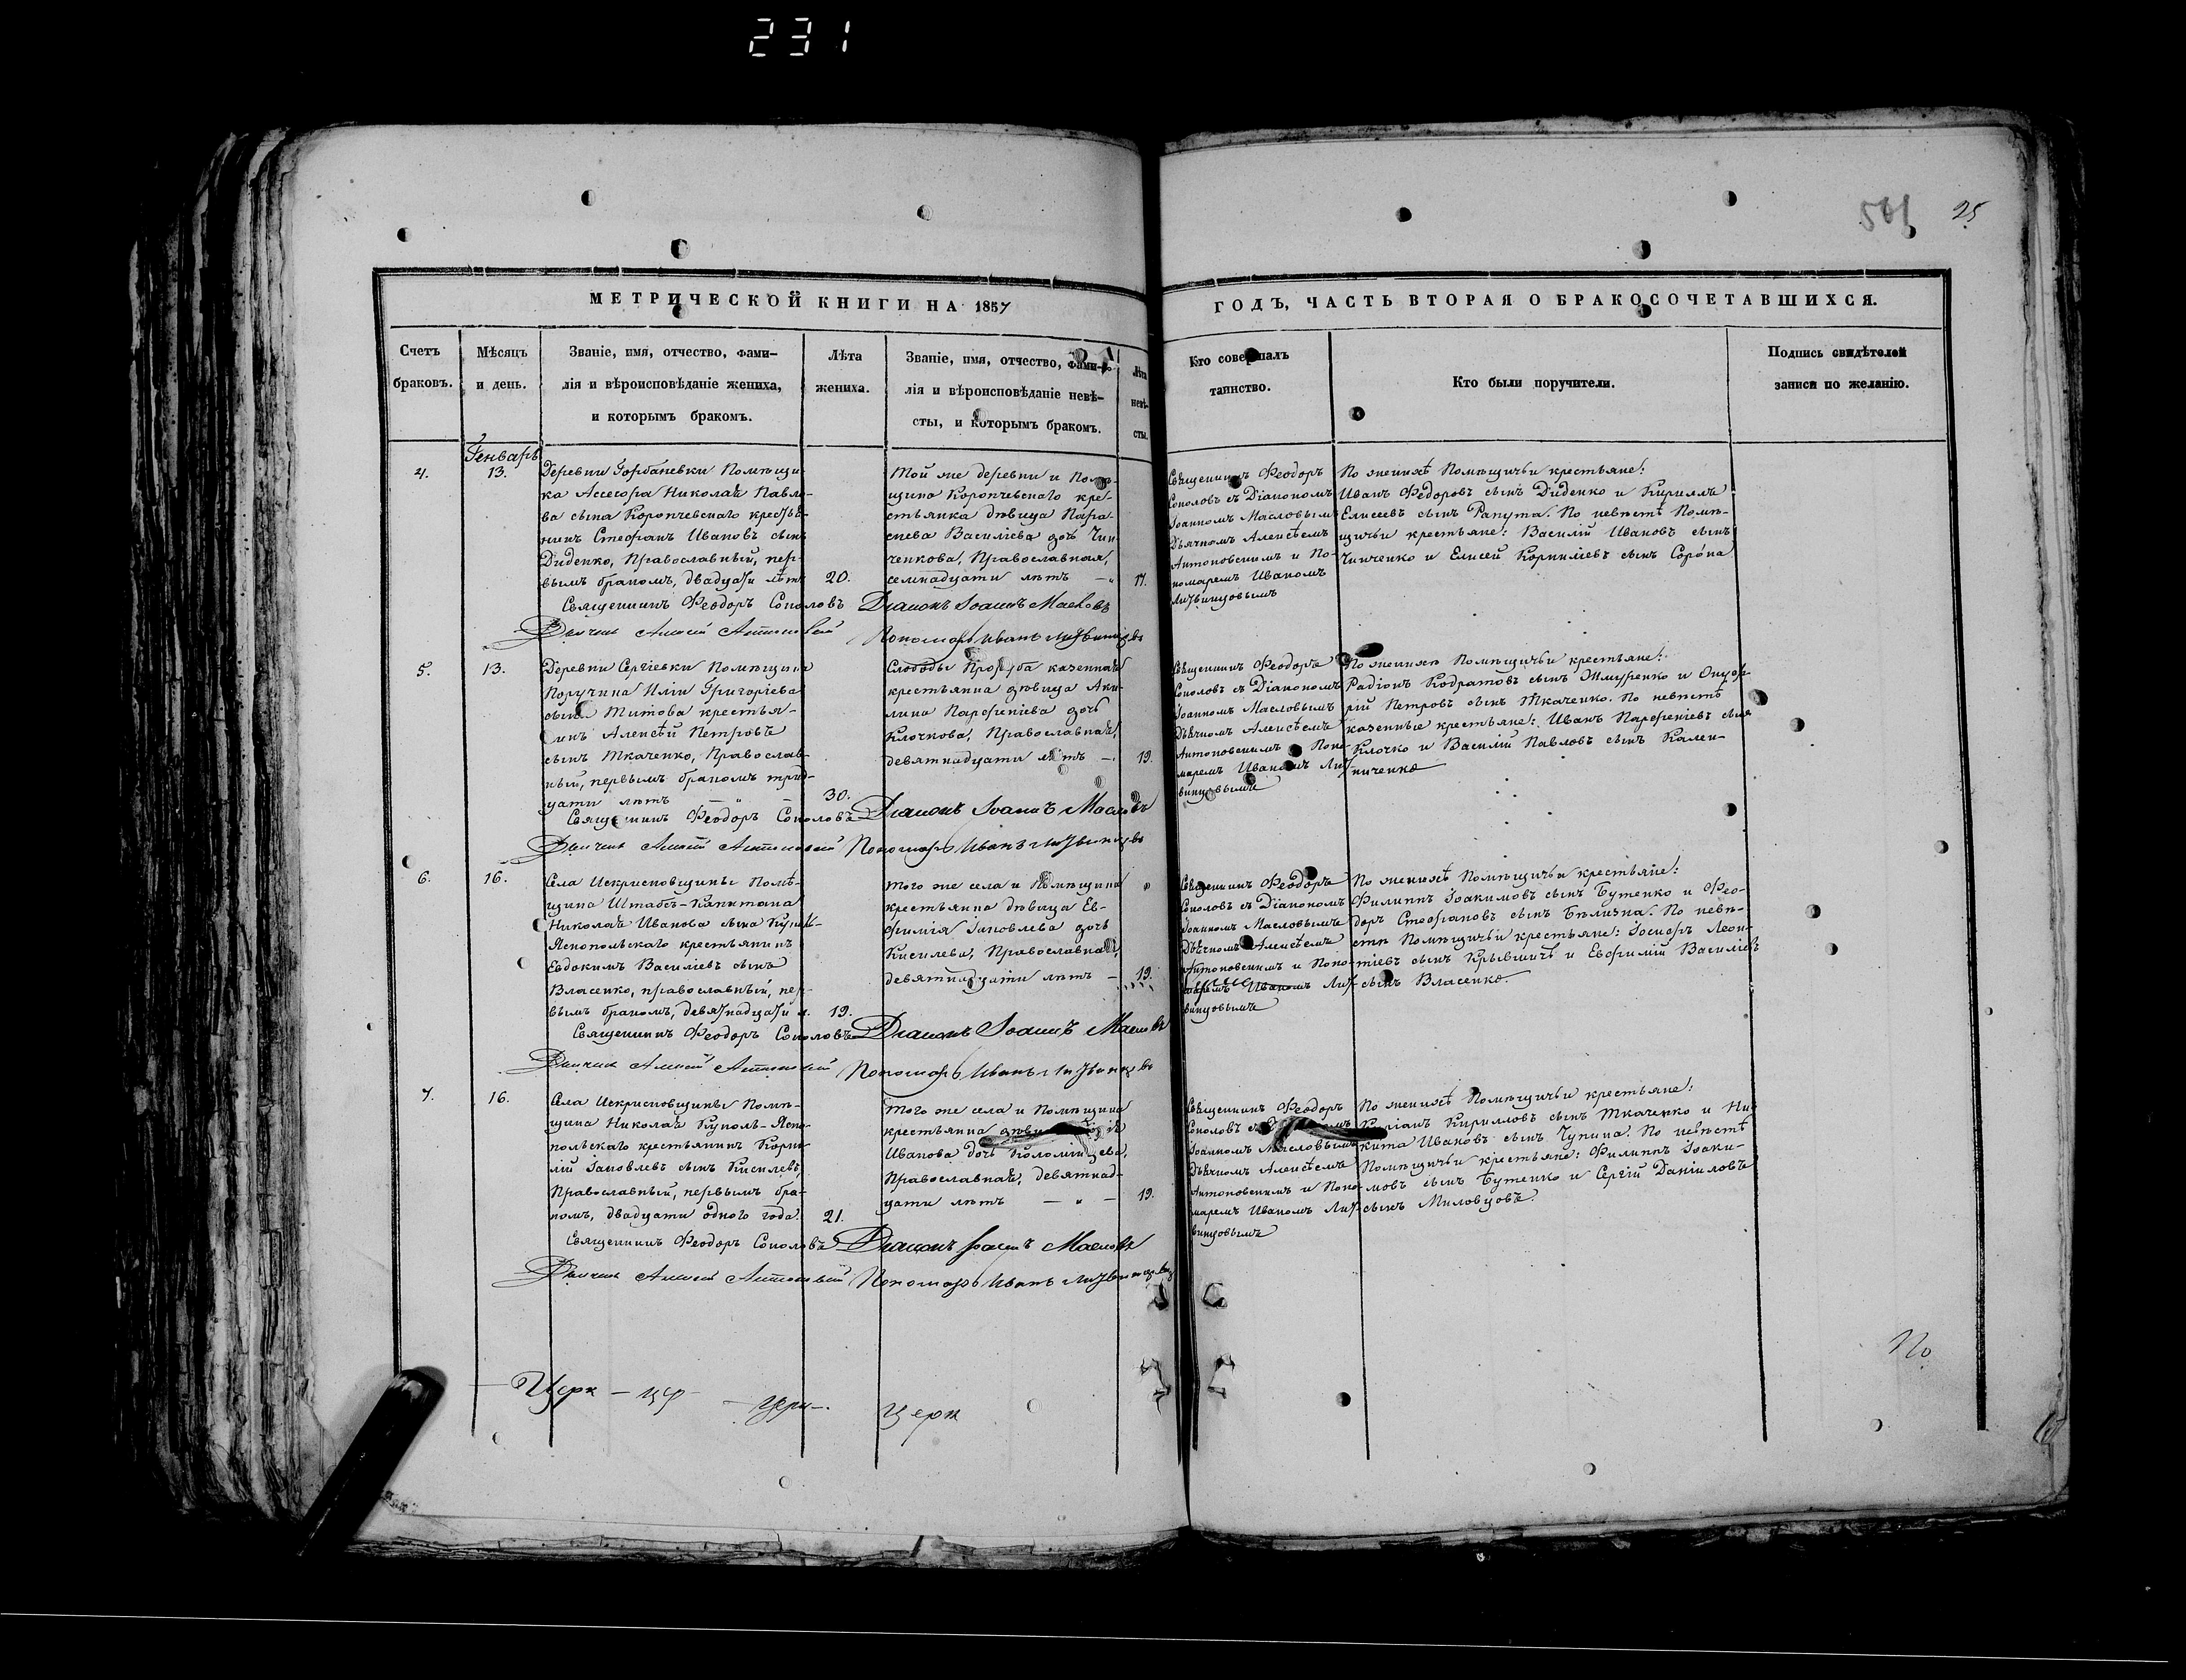 231
501 25
МЕТРИЧЕСКОЙ КНИГИ НА 1857
ГОДЪ, ЧАСТЬ ВТОРАЯ О БРАКОСОЧЕТАВШИХСЯ.
Счетъ
браковъ.
Мѣсяцъ
и день.
Званіе, имя, отчество, фами-
лія и вѣроисповѣданіе жениха,
и которымъ бракомъ.
Лѣта
жениха.
Званіе, имя, отчество, фами-
лія и вѣроисповѣданіе невѣ-
сты, и которымъ бракомъ.
Лѣта
невѣ-
сты.
Кто совершалъ
таинство.
Кто были поручители.
Подпись свидѣтелей
записи по желанію.
Генварь
4.
13.
Деревни Горбаневки Помѣщи-
ка Ассесора Николая Павло-
ва сына Коропчевскаго крестья-
нинъ Стефанъ Ивановъ сынъ
Диденко, Православный, пер-
вымъ бракомъ, двадцати лѣтъ
20.
Той же деревни и Помѣ-
щика Коропчевскаго кре-
стьянка дѣвица Пара-
скева Василіева дочь Чин-
ченкова, Православная,
семнадцати лѣтъ —
17.
Священникъ Феодоръ
Соколовъ съ Діакономъ
Іоанномъ Масловымъ
Дьячкомъ Алексѣемъ
Антоновскимъ и По-
номаремъ Иваномъ
Литвинцовымъ
По женихѣ Помѣщичьи крестьяне:
Иванъ Федоровъ сынъ Диденко и Кириллъ
Елисеевъ сынъ Рапута. По невѣстѣ Помѣ-
щичьи крестьяне: Василій Ивановъ сынъ
Чинченко и Елисей Корниліевъ сынъ Сорока
Священникъ Феодоръ Соколовъ Діаконъ Іоаннъ Масловъ
Дьячекъ Алексѣй Антоновскій Пономарь Иванъ Литвинцовъ
5.
13.
Деревни Сергіевки Помѣщика
Поручика Иліи Григоріева
сына Титова крестья-
нинъ Алексѣй Петровъ
сынъ Ткаченко, Православ-
ный, первымъ бракомъ трид-
цати лѣтъ — " —
30.
Слободы казенная
крестьянка дѣвица Аки-
лина Парфеніева дочь
Клочкова, Православная,
девятнадцати лѣтъ —
19.
Священникъ Феодоръ
Соколовъ съ Діакономъ
Іоанномъ Масловымъ
Дьячкомъ Алексѣемъ
Антоновскимъ и Поно-
маремъ Иваномъ Лит-
винцовымъ
По женихѣ Помѣщичьи крестьяне:
Радіонъ Кодратовъ сынъ Шмуренко и Онуф-
рій Петровъ сынъ Ткаченко. По невѣстѣ
казенные крестьяне: Иванъ Парфеніевъ сынъ
Клочко и Василій Павловъ сынъ Калени-
ниченко
Священникъ Феодоръ Соколовъ Діаконъ Іоаннъ Масловъ
Дьячекъ Алексѣй Антоновскій Пономарь Иванъ Литвинцовъ
6.
16.
Села Искрисковщины Помѣ-
щика Штабсъ-Капитана
Николая Иванова сына Куколь-
Яснопольскаго крестьянинъ
Евдокимъ Василіевъ сынъ
Власенко, православный, пер-
вымъ бракомъ, девятнадцати л.
19.
Того же села и Помѣщика
крестьянка дѣвица Ев-
фимія Іаковлева дочь
Кисилева, Православная,
девятнадцати лѣтъ —
19.
Священникъ Феодоръ
Соколовъ съ Діакономъ
Іоанномъ Масловымъ
Дьячкомъ Алексѣемъ
Антоновскимъ и Поно-
маремъ Иваномъ Лит-
винцовымъ
По женихѣ Помѣщичьи крестьяне:
Филиппъ Іоакимовъ сынъ Бутенко и Фео-
доръ Стефановъ сынъ Бѣлизна. По невѣ-
стѣ Помѣщичьи крестьяне: Іосифъ Леон-
тіевъ сынъ Крывшичъ и Евфимій Василіевъ
сынъ Власенко.
Священникъ Феодоръ Соколовъ Діаконъ Іоаннъ Масловъ
Дьячекъ Алексѣй Антоновскій Пономарь Иванъ Литвинцовъ
7.
16.
Села Искрисковщины Помѣ-
щика Николая Куколь-Ясно-
польскаго крестьянинъ Корни-
лій Іаковлевъ сынъ Кисилевъ,
Православный, первымъ бра-
комъ, двадцати одного года.
21.
Того же села и Помѣщика
крестьянка
Иванова дочь Коломійцева,
Православная, девятнад-
цати лѣтъ — " —
19.
Священникъ Феодоръ
Соколовъ съ Діакономъ
Іоанномъ Масловымъ
Дьячкомъ Алексѣемъ
Антоновскимъ и Поно-
маремъ Иваномъ Лит-
винцовымъ
По женихѣ Помѣщичьи крестьяне:
Кирилловъ сынъ Ткаченко и Ни-
кита Ивановъ сынъ Чупина. По невѣстѣ
Помѣщичьи крестьяне: Филиппъ Іоаки-
мовъ сынъ Бутенко и Сергій Даніиловъ
сынъ Миловцовъ.
Священникъ Феодоръ Соколовъ Діаконъ Іоаннъ Масловъ
Дьячекъ Алексѣй Антоновскій Пономарь Иванъ Литвинцовъ
По